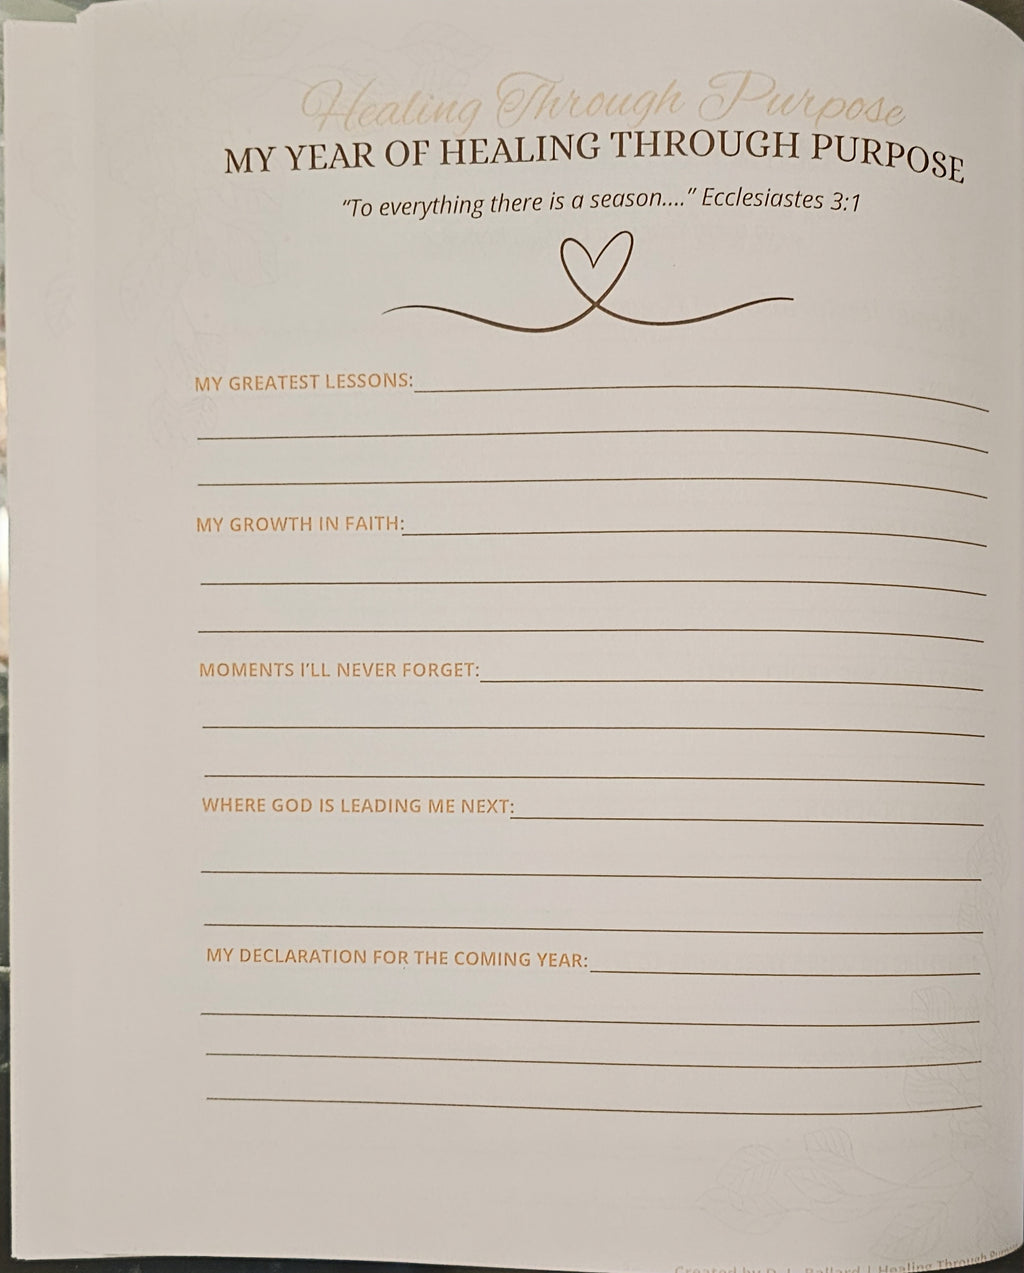 Healing Through Purpose
MY YEAR OF HEALING THROUGH PURPOSE
“To everything there is a season....” Ecclesiastes 3:1
MY GREATEST LESSONS:
MY GROWTH IN FAITH:
MOMENTS I’LL NEVER FORGET:
WHERE GOD IS LEADING ME NEXT:
MY DECLARATION FOR THE COMING YEAR:
Created by D. L. | Healing Through Purpose